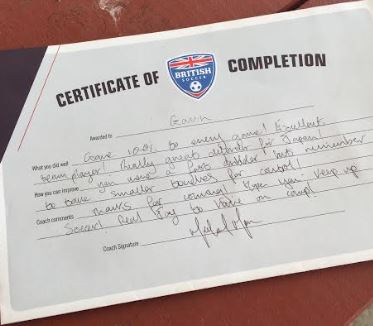 CERTIFICATE OF COMPLETION
BRITISH
SOCCER
Awarded to Gavin
What you did well Gave 100% to every game! Excellent
team player! Really great defender for Japan!
How you can improve a fast dribbler but remember
to take smaller touches for control!
Coach comments marks for coming! Hope you keep up
Soccer! Real joy to have on camp!
Coach Signature